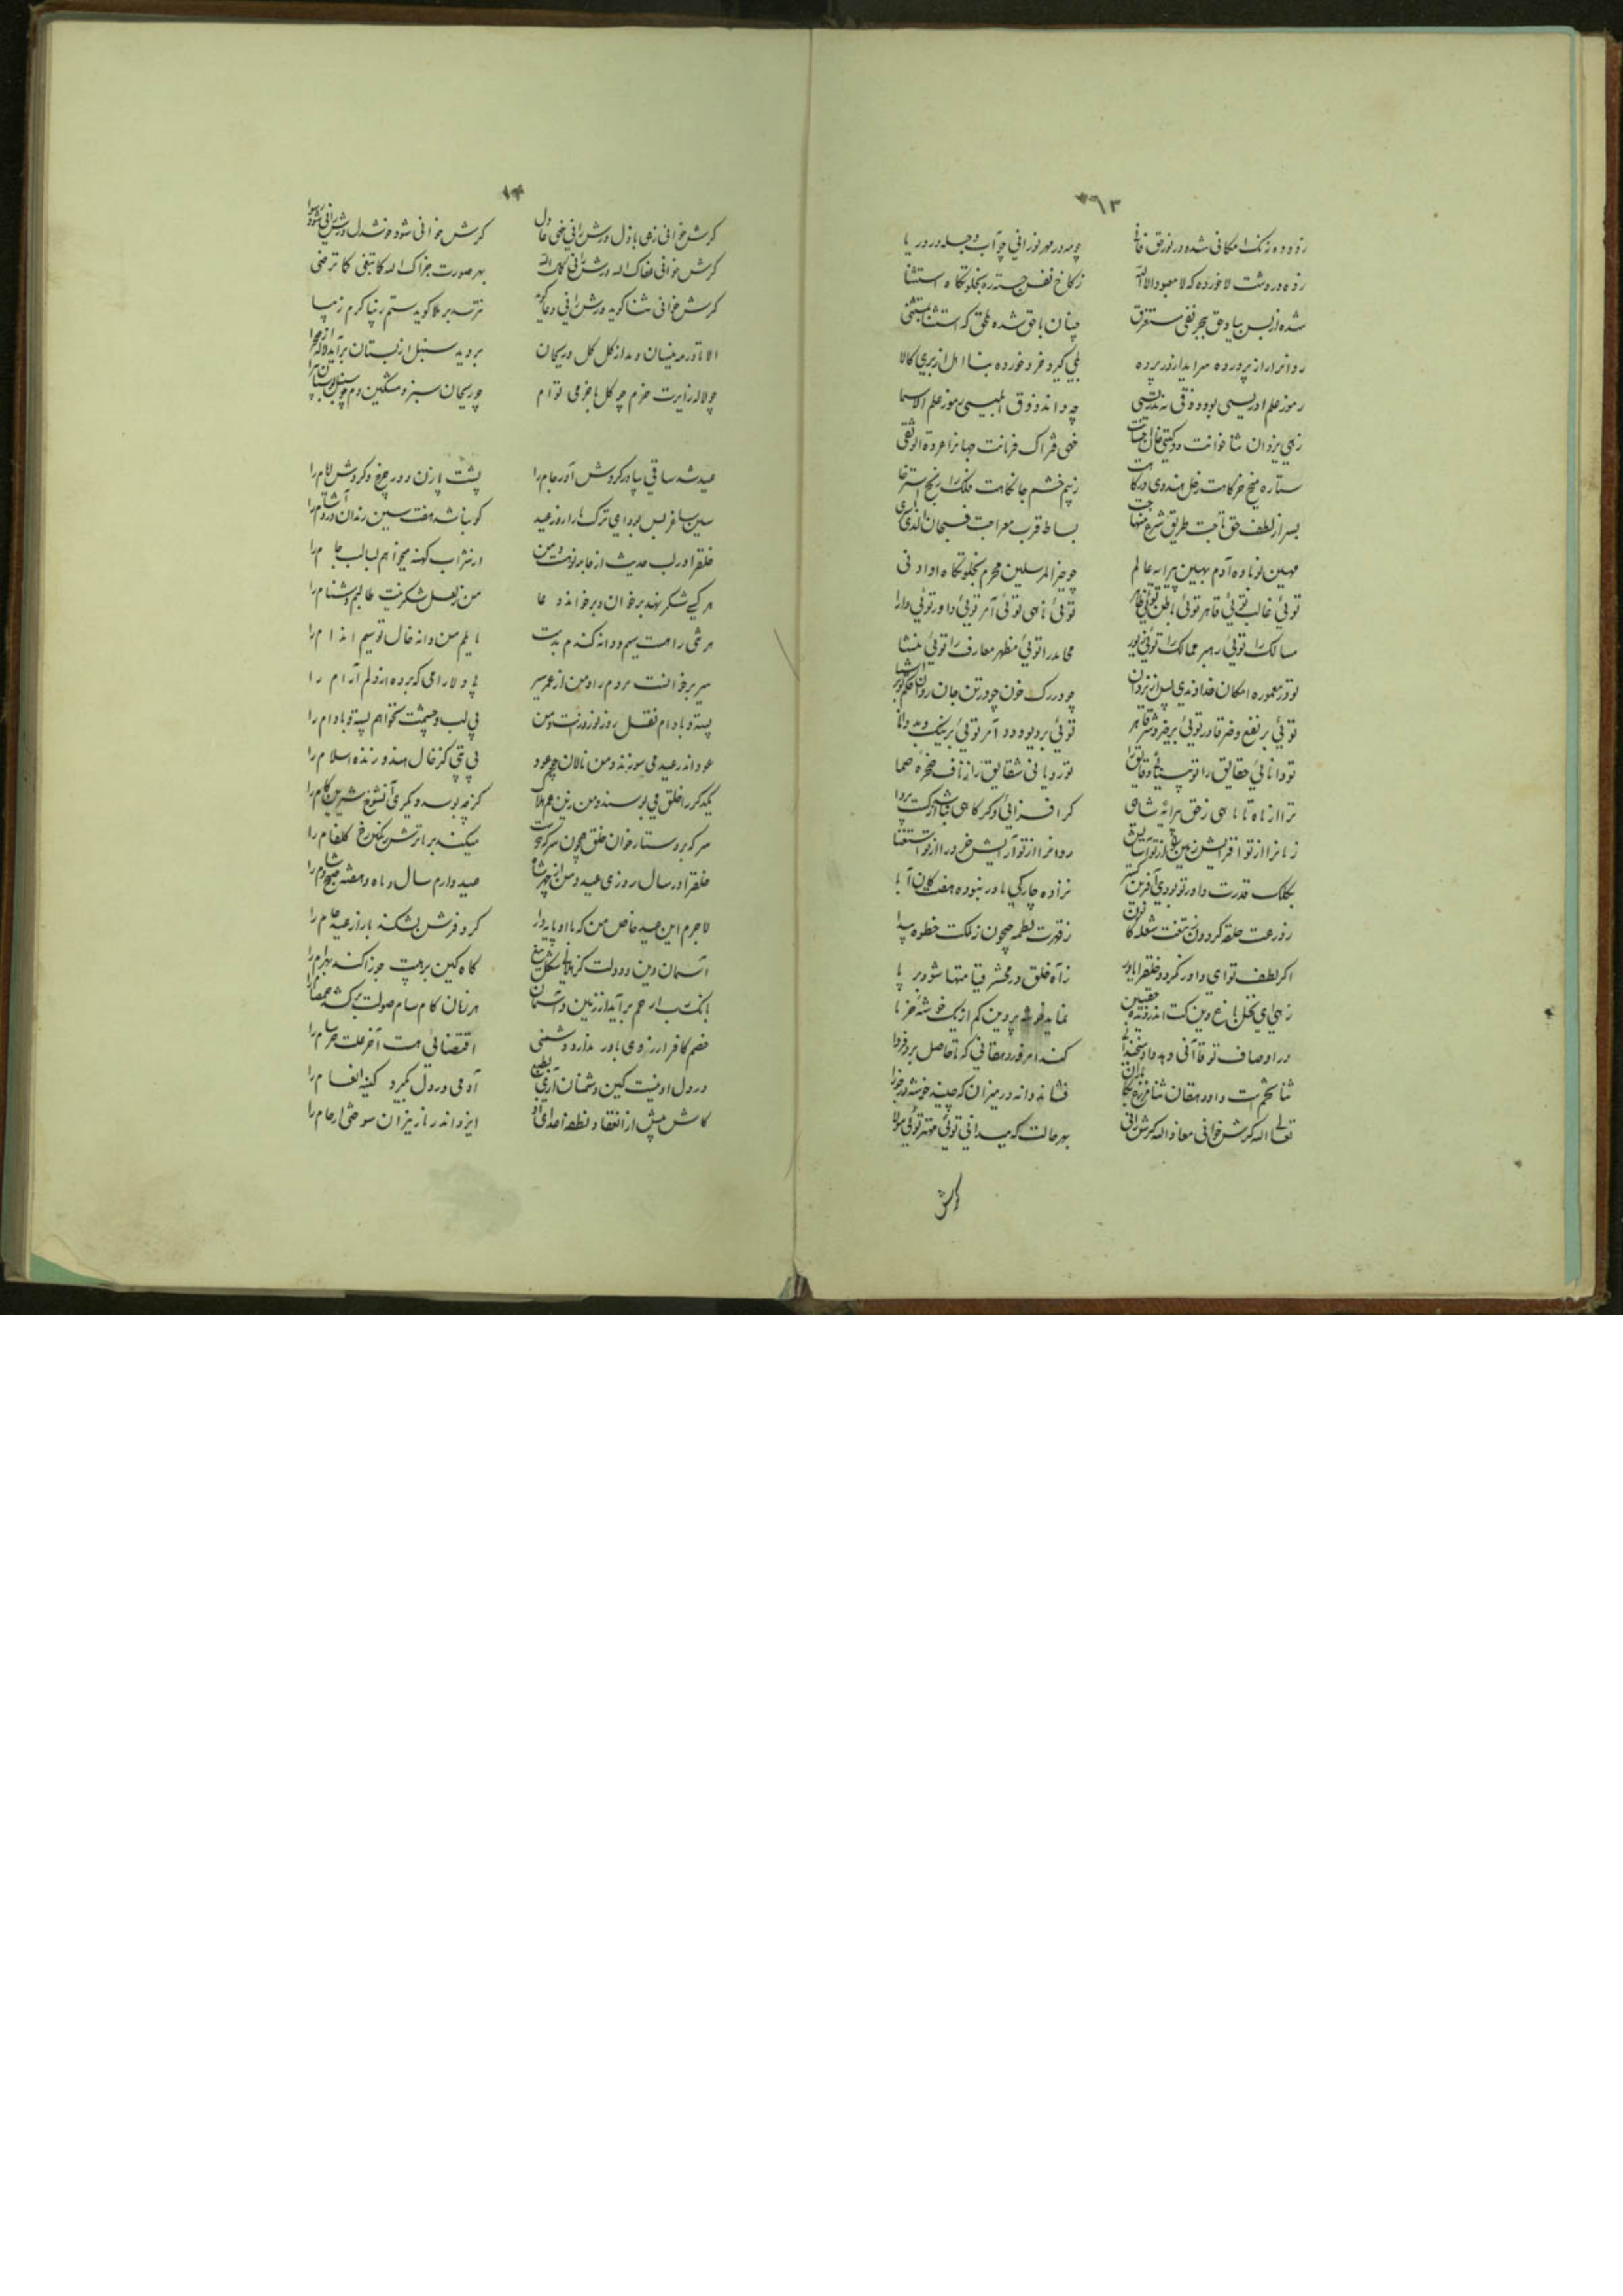 ۳۶۱۳
زدوده زنک امکانی شده در نور حق فانی چو مه در مهر نورانی چو آب دجله در دریا
زده در دشت لا خرده که لا معبود الا الله ز کاخ نفس جسته ره بخلوتکاه استثنا
شده از بس بیاد حق ببحر نفی مستغرق چنان با حق شده ملحق که استثنا بمستثنی
روانرا راز پرورده سراید از پرده بلی کیرد خرد خورده بنا اهل از بری کالا
رموز علم ادریسی بود ذوقی نه تدریسی چه داند ذوق ابلیسی رموز علم الاسما
زهی یزدان ثنا خوانت دو کیتی خوان احسانت خهی فتراک فرمانت جهانرا عروة الوثقی
ستاره میخ خرکاهت زحل هندوی درکاهت ز بیم خشم جانکاهت فلک را رنج استرخا
بسر از لطف حق تاجت طریق شرع منهاجت بساط قرب معراجت فسبحان الذی اسری
مهین نوباوه آدم بهین پیرایه عالم چو خیر المرسلین محرم بخلوتکاه او ادنی
توئی غالب توئی قاهر توئی باطن توئی ظاهر توئی ناهی توئی آمر توئی داور توئی دارا
مسالک را توئی رهبر ممالک را توئی زیور محامد را توئی مظهر معارف را توئی منشا
تو در معموره امکان خداوندی پس از یزدان چو در رک خون چو در تن جان روان حکم تو بر اشیا
توئی بر نفع و ضر قادر توئی بر خیر و شر قاهر توئی بر دیو و دد آمر توئی بر نیک و بد دانا
تو دانائی حقایق را تو بینائی دقایق را تو رویانی شقایق را ز ناف صخره صما
ترا از ماه تا ماهی ز حق پیرایه شاهی کر افزائی و کر کاهی نباشد از کست پروا
زمانرا از تو افزایش زمین را از تو آسایش روانرا از تو آرایش خرد را از تو استغنا
بکلک قدرت داور تو بودی آفرین کستر نزاده چارکی مادر نبوده هفتکان آبا
ز درعت حلقه کردون ز تیغت شعله کانون ز قهرت لطمه جیحون ز ملکت خطوه بیدا
اکر لطف تو ای داور نکردد خلقرا یاور ز آه خلق در محشر قیامتها شود بر پا
زهی ای نخل باغ دین کت اندر دیده حقبین نماید خوشه پروین کم از یک خوشه خرما
در اوصاف تو قاآنی دهد داد سخندانی کند امروز دهقانی که تا حاصل برد فردا
ثنا تخمست و او دهقان ثنا مزرع جا باران فشاند دانه در میزان که چیند خوشه در جوزا
تعالی الله کرش خوانی معاذ الله کرش رانی بهر حالت که میدانی توئی مهتر توئی مولا
کرش
۱۴
کرش خوانی زهی باذل ورش رانی خهی عادل کرش خوانی شود خوشدل ورش رانی شود رسوا
کرش خوانی عفاک الله ورش رانی کفاک الله بهر صورت جزاک الله کما تبغی کما ترضی
کرش خوانی ثنا کوید ورش رانی دعا کوید نترسد بر ملا کوید ستم زیبا کرم زیبا
الا تا در مه نیسان دمد از کل کل و ریحان بروید سنبل از بستان برآید لاله از صحرا
چو لاله زایرت خرم چو کل با خرمی توام چو ریحان سبز و مشکین دم چو سنبل بوستان پیرا
عید شد ساقی بیا در کردش آور جام را پشت پا زن دور چرخ و کردش ایام را
سین ساغر بس بود ای ترک ما را روز عید کو نباشد هفت سین رندان درد آشام را
خلقرا در لب حدیث از جامه نوهست و من از شراب کهنه میخواهم لبالب جام را
هر کسی شکر نهد بر خوان و بر خواند دعا من ز لعل شکرینت طالبم دشنام را
هر تنی را هست سیم و دانه کندم بدست مایلم من دانه خال تو سیم اندام را
سیر بر خوانست مردم را و من از عمر سیر بی دلارامی که برده از دلم آرام را
پسته و بادام نقل روز نوروزست و من بی لب و چشمت نخواهم پسته و بادام را
عود اندر عید می سوزند و من نالان چو عود بی بتی کز خال هندو رد زند اسلام را
یکدکر را خلق می بوسند و من زین غم هلاک کز چه بوسد دیکری آن شوخ شیرین کام را
سرکه بر دستار خوان خلق همچون سرکه دوست میکند بر ما ترش رنکین رخ کلفام را
خلقرا در سال روزی عید و من از چهر شاه عید دارم سال و ماه و هفته صبح و شام را
لاجرم این عید خاص من که بادا پایدار کر و فرش بشکند بازار عید عام را
آسمان دین و دولت کز هلالی شکل تیغ کاه کین بر هیئت جوزا کند بهرام را
بانک رب ارحم برآید از زمین و آسمان هر زمان کام سام صولت برکشد صمصام را
خصم کافر ار ز وی باور ندارد دشمنی اقتضائی هست آخر علت سرسام را
در دل او نیست کین دشمنان آری بطبع آدمی در دل نکیرد کینه انعام را
کاش پیش از انعقاد نطفه اعدای او ایزد اندر نار نیران سوختی ارحام را